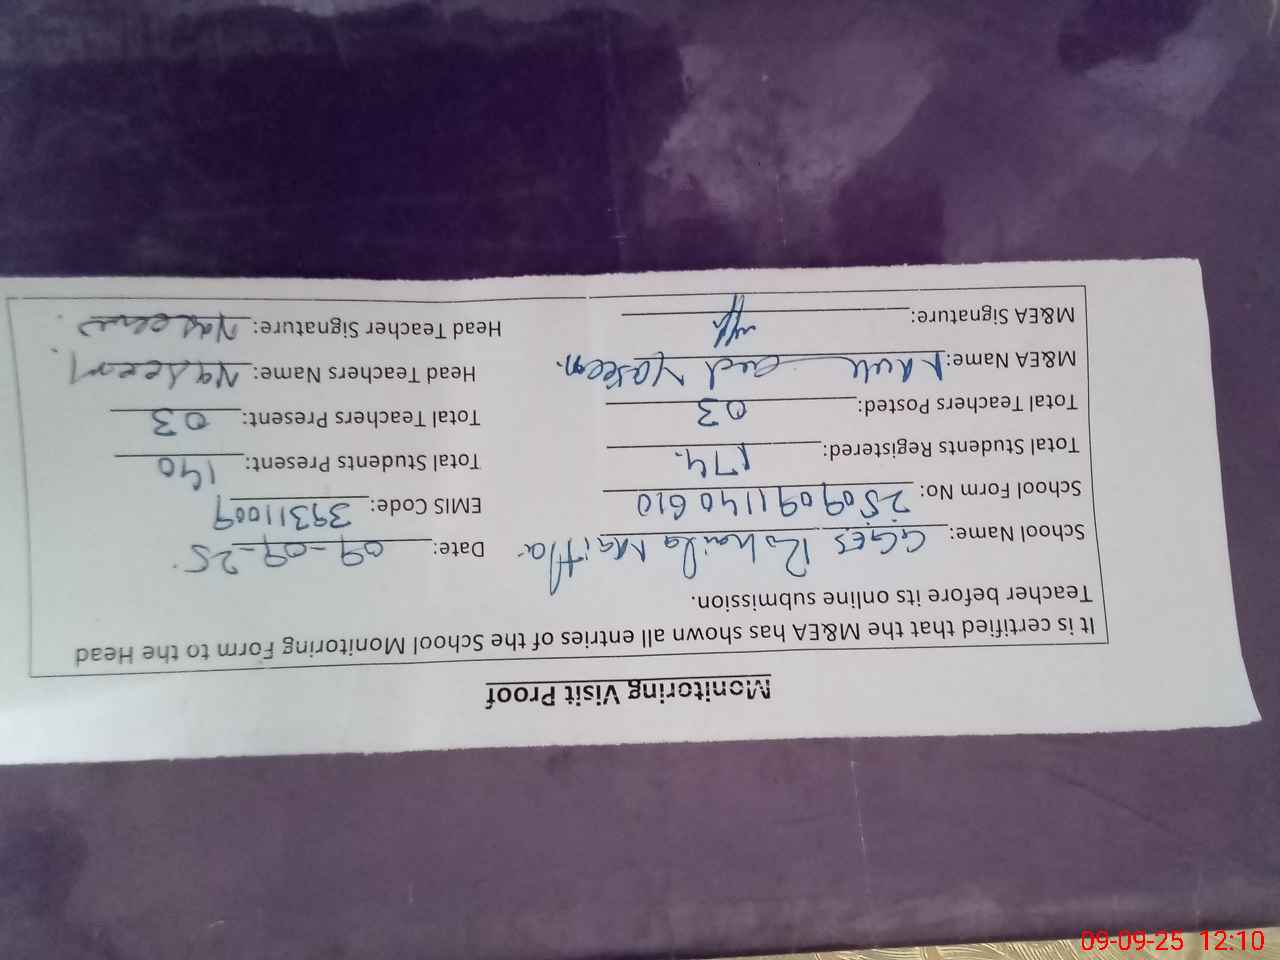 Monitoring Visit Proof
It is certified that the M&EA has shown all entries of the School Monitoring Form to the Head
Teacher before its online submission.
School Name: GGES Date: 09-09-25
School Form No: 2509091140610 EMIS Code: 39311009
Total Students Registered: 174 Total Students Present: 140
Total Teachers Posted: 03 Total Teachers Present: 03
M&EA Name: Naseem. Head Teachers Name: Naseem.
M&EA Signature: Head Teacher Signature: Naseem
09-09-25 12:10